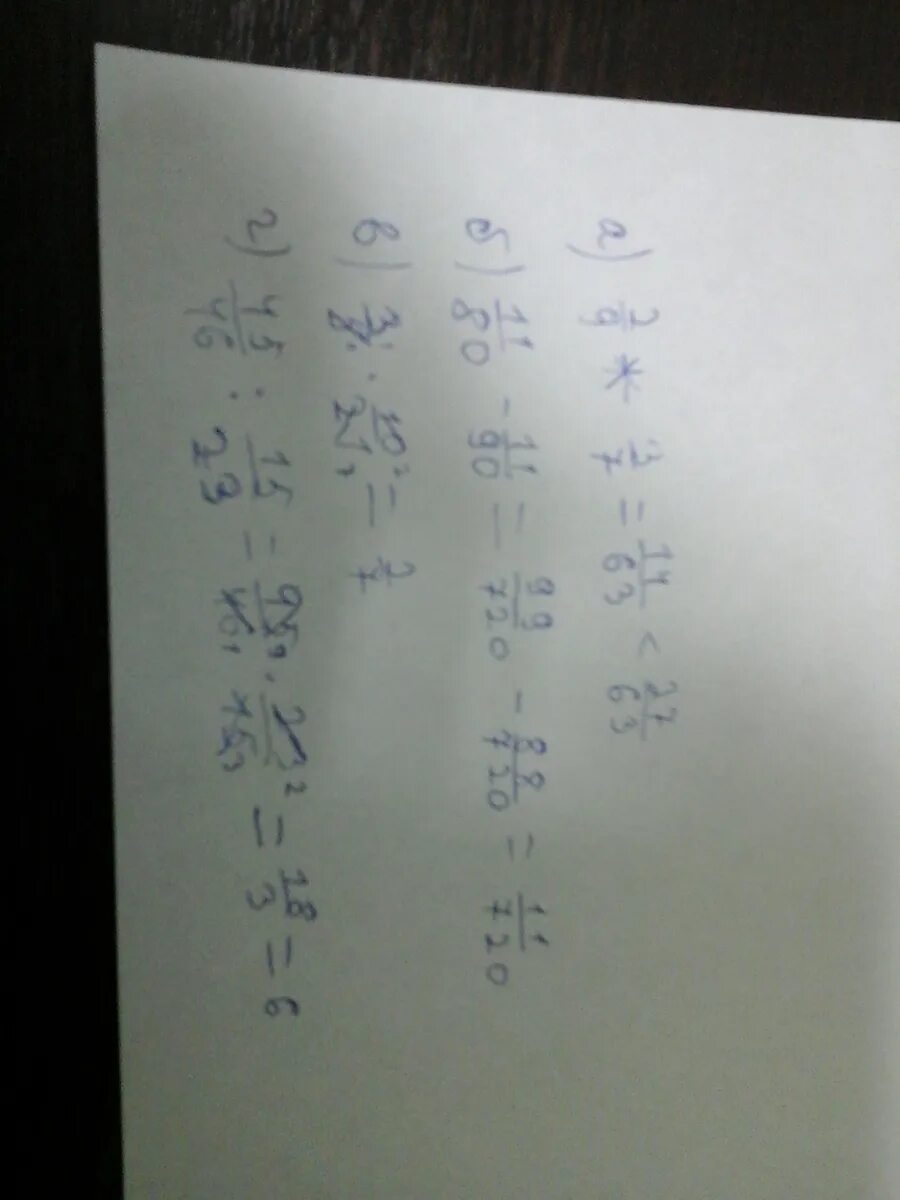 а) 2/9 * 3/7 = 14/63 < 27/63
б) 11/80 - 11/90 = 99/720 - 88/720 = 11/720
в) · 10²/21₇ = 2/7
г) 45/46 : 15/23 = · = 18/3 = 6